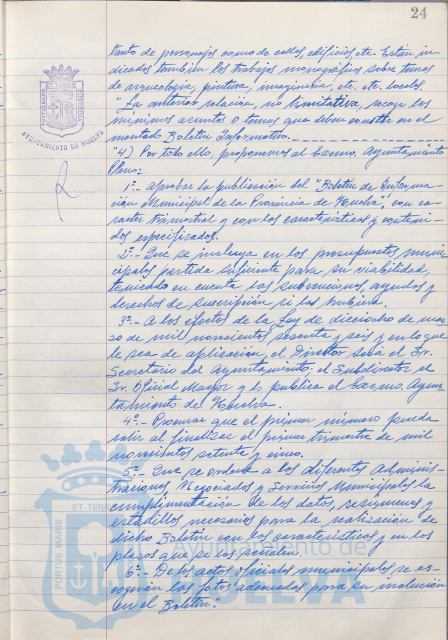 24
tanto de personajes como de calles, edificios, etc. Están in-
dicados también los trabajos monográficos sobre temas
de arqueología, pintura, imaginería, etc. etc. locales.
"La anterior relación, no limitativa, recoge los
mínimos asuntos o temas que deben constar en el
mentado Boletín Informativo.
"4) Por todo ello, proponemos al Excmo. Ayuntamiento
Pleno:
1º.- Aprobar la publicación del "Boletín de Informa-
ción Municipal de la Provincia de Huelva", con ca-
racter trimestral y con las características y conteni-
dos especificados.
2º.- Que se incluya en los presupuestos muni-
cipales partida suficiente para su viabilidad,
teniendo en cuenta las subvenciones, ayudas y
derechos de suscripción si los hubiere.
3º.- A los efectos de la Ley de dieciocho de mar-
zo de mil novecientos sesenta y seis y en lo que
le sea de aplicación, el Director será el Sr.
Secretario del Ayuntamiento; el Subdirector el
Sr. Oficial Mayor y lo publica el Excmo. Ayun-
tamiento de Huelva.
4º.- Procurar que el primer número pueda
salir al finalizar el primer trimestre de mil
novecientos setenta y cinco.
5º.- Que se ordene a los diferentes Adminis-
traciones, Negociados y Servicios Municipales la
cumplimentación de los datos, resúmenes y
estadillos necesarios para la realización de
dicho Boletín con las características y en los
plazos que se les señalen.
6º.- De los actos oficiales municipales se es-
cogerán las fotos adecuadas para su inclusión
en el Boletín".
AYUNTAMIENTO DE HUELVA
PORTUS MARIS
ET TERRAE
Ayuntamiento de
HUELVA